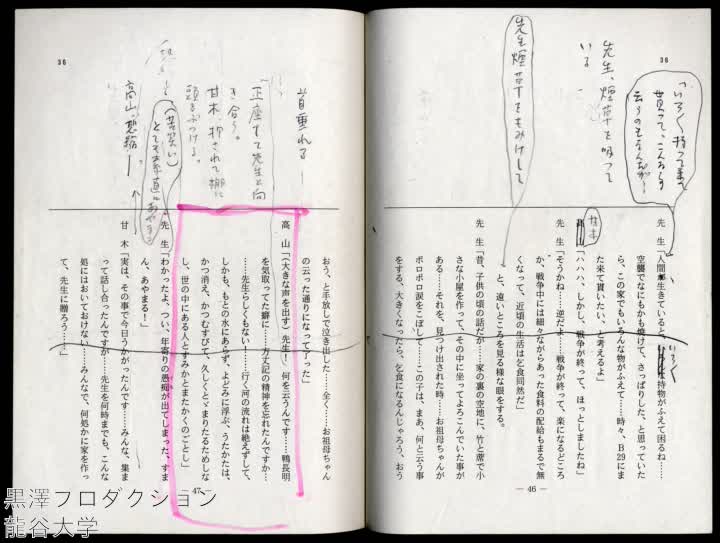 36
「いろ〳〵持って来て
貰って、こんな事
先生、煙草を吸って
いる
先生煙草をもみけして
甘木
先 生「人間、生きていると、持物がふえて困るね……
空襲でなにもかも焼けて、さっぱりした、と思っていた
ら、この家でもいろんな物がふえて……時々、B29にま
た来て貰いたい、と考えるよ」
高 山「ハハハ、しかし、戦争が終って、ほっとしましたね」
先 生「そうかね……逆だよ……戦争が終って、楽になるどころ
か、戦争中には細々ながらあった食料の配給もまるで無
くなって、近頃の生活は乞食同然だ」
と、遠いところを見る様な眼をする。
先 生「昔、子供の頃の話だが……家の裏の空地に、竹と蓆で小
さな小屋を作って、その中に坐ってよろこんでいた事が
ある……それを、見つけ出された時……お祖母ちゃんが
ボロボロ涙をこぼして……この子は、まあ、何と云う事
をする、大きくなったら、乞食になるんじゃろう、おう
— 46 —
36
首垂れる
正座して先生と向
き合う。
甘木、押されて棚に
頭をぶつける。
(苦笑い)
高山、憩籍
おう、と手放しで泣き出した……全く……お祖母ちゃん
の云った通りになって了った」
高 山「(大きな声を出す)先生!何を云うんです……鴨長明
を気取ってた癖に……方丈記の精神を忘れたんですか…
…先生らしくもない!……行く河の流れは絶えずして、
しかも、もとの水にあらず、よどみに浮ぶ、うたかたは、
かつ消え、かつむすびて、久しくとゞまりたるためしな
し、世の中にある人とすみかとまたかくのごとし」
先 生「わかったよ、つい、年寄りの愚痴が出てしまった、すま
ん、あやまる!」
甘 木「実は、その事で今日うかがったんです……みんな、集ま
って話し合ったんですが……先生を何時までも、こんな
処にはおいておけない……みんなで、何処かに家を作っ
て、先生に贈ろう……」
47
黒澤プロダクション
龍谷大学